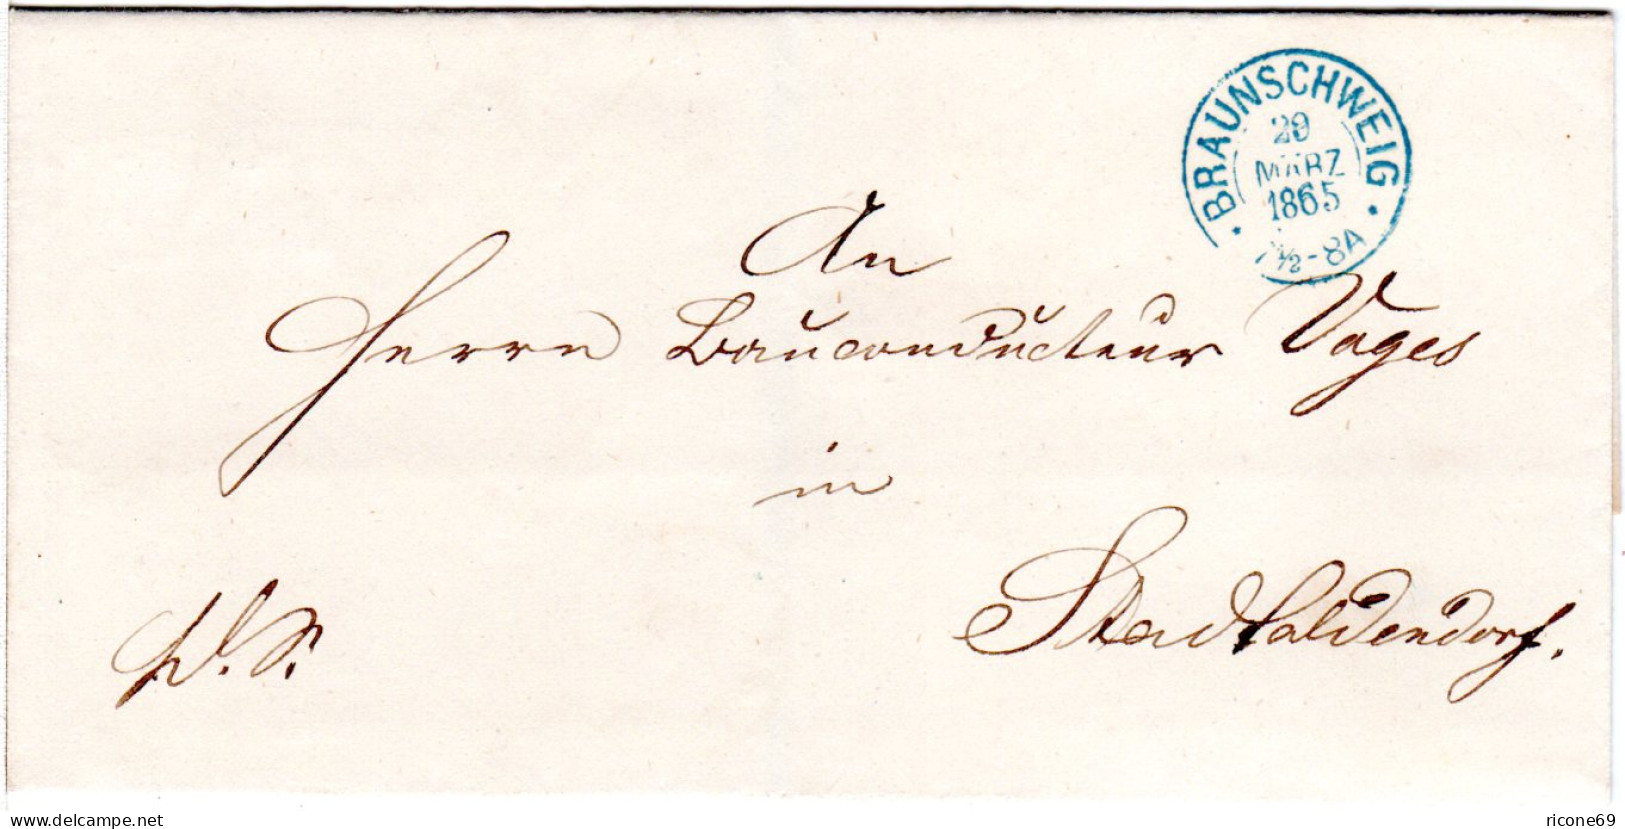 BRAUNSCHWEIG
29
MÄRZ
1865
7½-8A
An
Herrn Bauconducteur Vages
in
Stadtoldendorf.
delcampe.net
ricone69